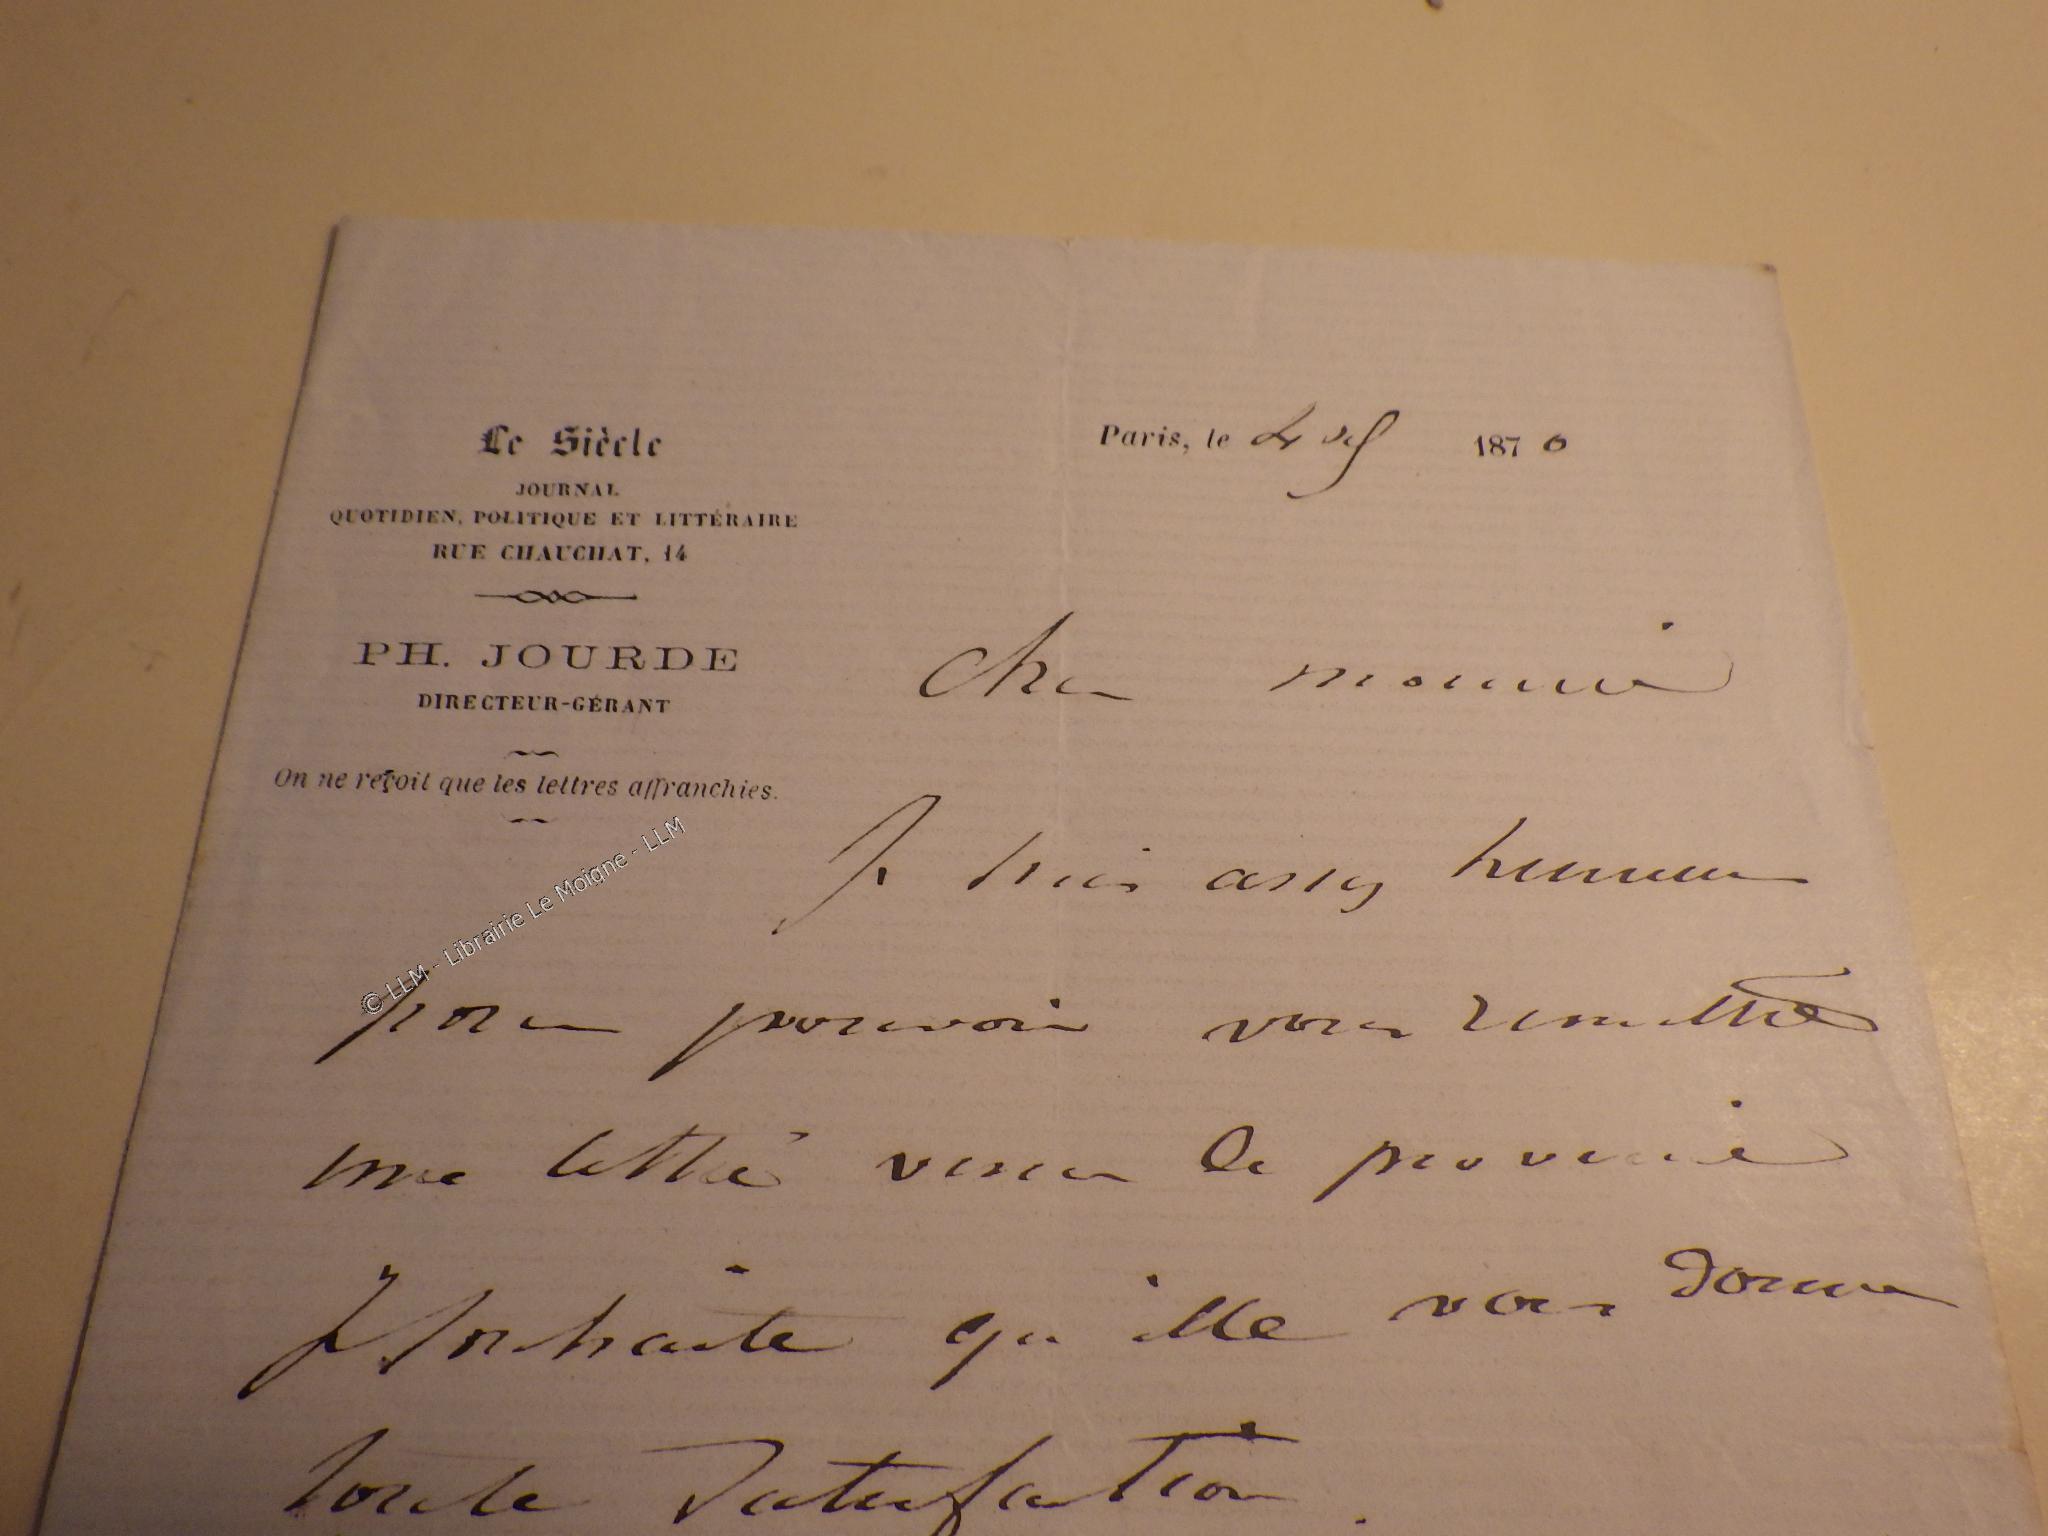 Le Siècle
JOURNAL
QUOTIDIEN, POLITIQUE ET LITTÉRAIRE
RUE CHAUCHAT, 14
PH. JOURDE
DIRECTEUR-GÉRANT
On ne reçoit que les lettres affranchies.
Paris, le 4 1870
Cher monsieur
Je suis assez heureux
pour pouvoir vous remettre
une lettre venue de province
Je souhaite qu'elle vous donne
toute satisfaction.
© LLM - Librairie Le Moigne - LLM